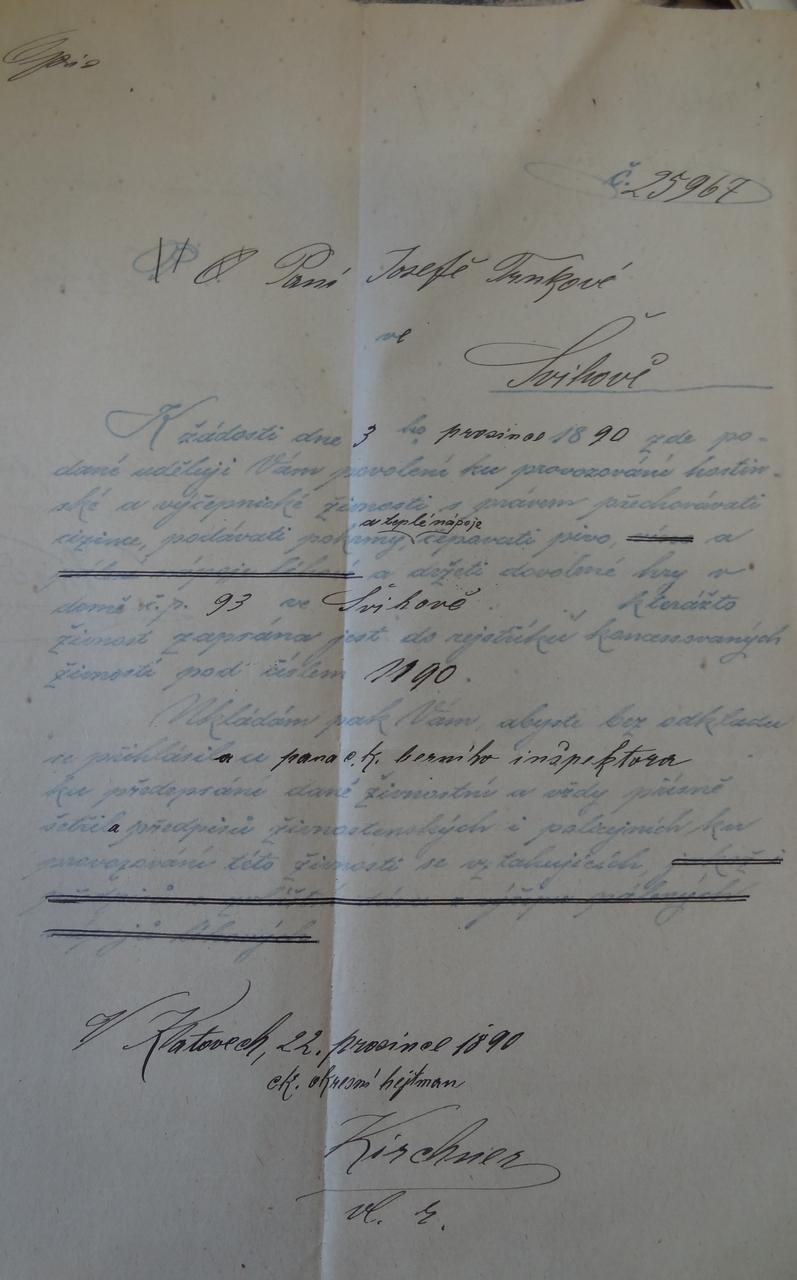 Opis
č. 25967
Paní Josefě Trnkové
ve
Švihově
K žádosti dne 3 ho prosince 1890 zde po-
dané uděluji Vám povolení ku provozování hostin-
ské a výčepnické živnosti s právem přechovávati
a teplé nápoje
cizince, podávati pokrmy, čepovati pivo, víno a
a držeti dovolené hry v
domě č.p. 93 ve Švihově kterážto
živnost zapsána jest do rejstříků koncesovaných
živností pod číslem 1190.
Ukládám pak Vám, abyste bez odkladu
se přihlásila u pana c.k. berního inšpektora
ku předepsání daně živnostní a vždy přísně
šetřila předpisů živnostenských i policejních ku
provozování této živnosti se vztahujících, jakož i
předpisů o výčepu pálených
nápojů lihových
V Klatovech, 22. prosince 1890
ck. okresní hejtman
Kirchner
vl. r.